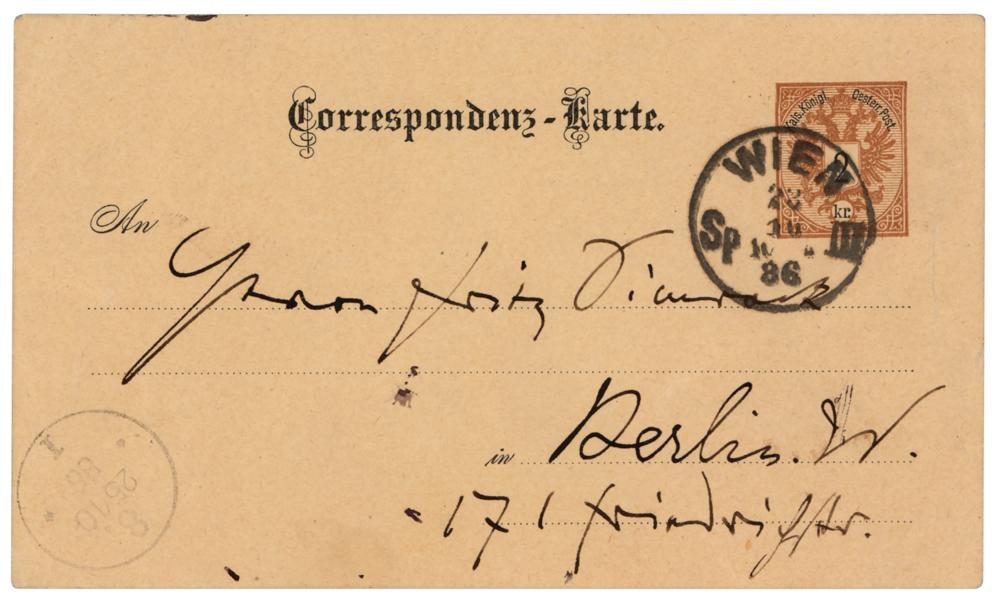 Correspondenz-Karte.
Kais. Königl. Oesterr. Post.
2
kr.
WIEN
Sp III
86
An
Herrn Fritz Simrock
in Berlin. W.
171 Friedrichstr.